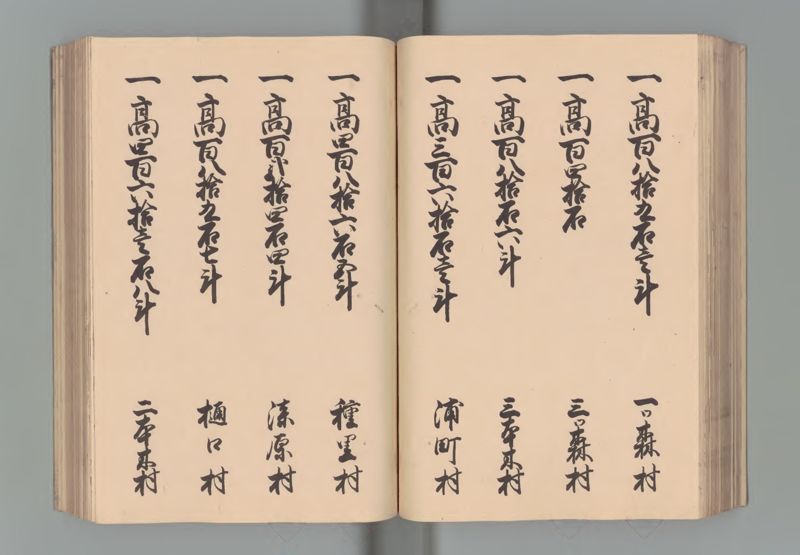 一高百八拾五石壱斗 一口森村
一高百四拾石 三口森村
一高百八拾石六斗 三本木村
一高三百六拾石壱斗 浦町村
一高四百八拾六石五斗 種里村
一高百弐拾四石四斗 漆原村
一高百八拾五石七斗 樋口村
一高四百六拾壱石八斗 二本木村